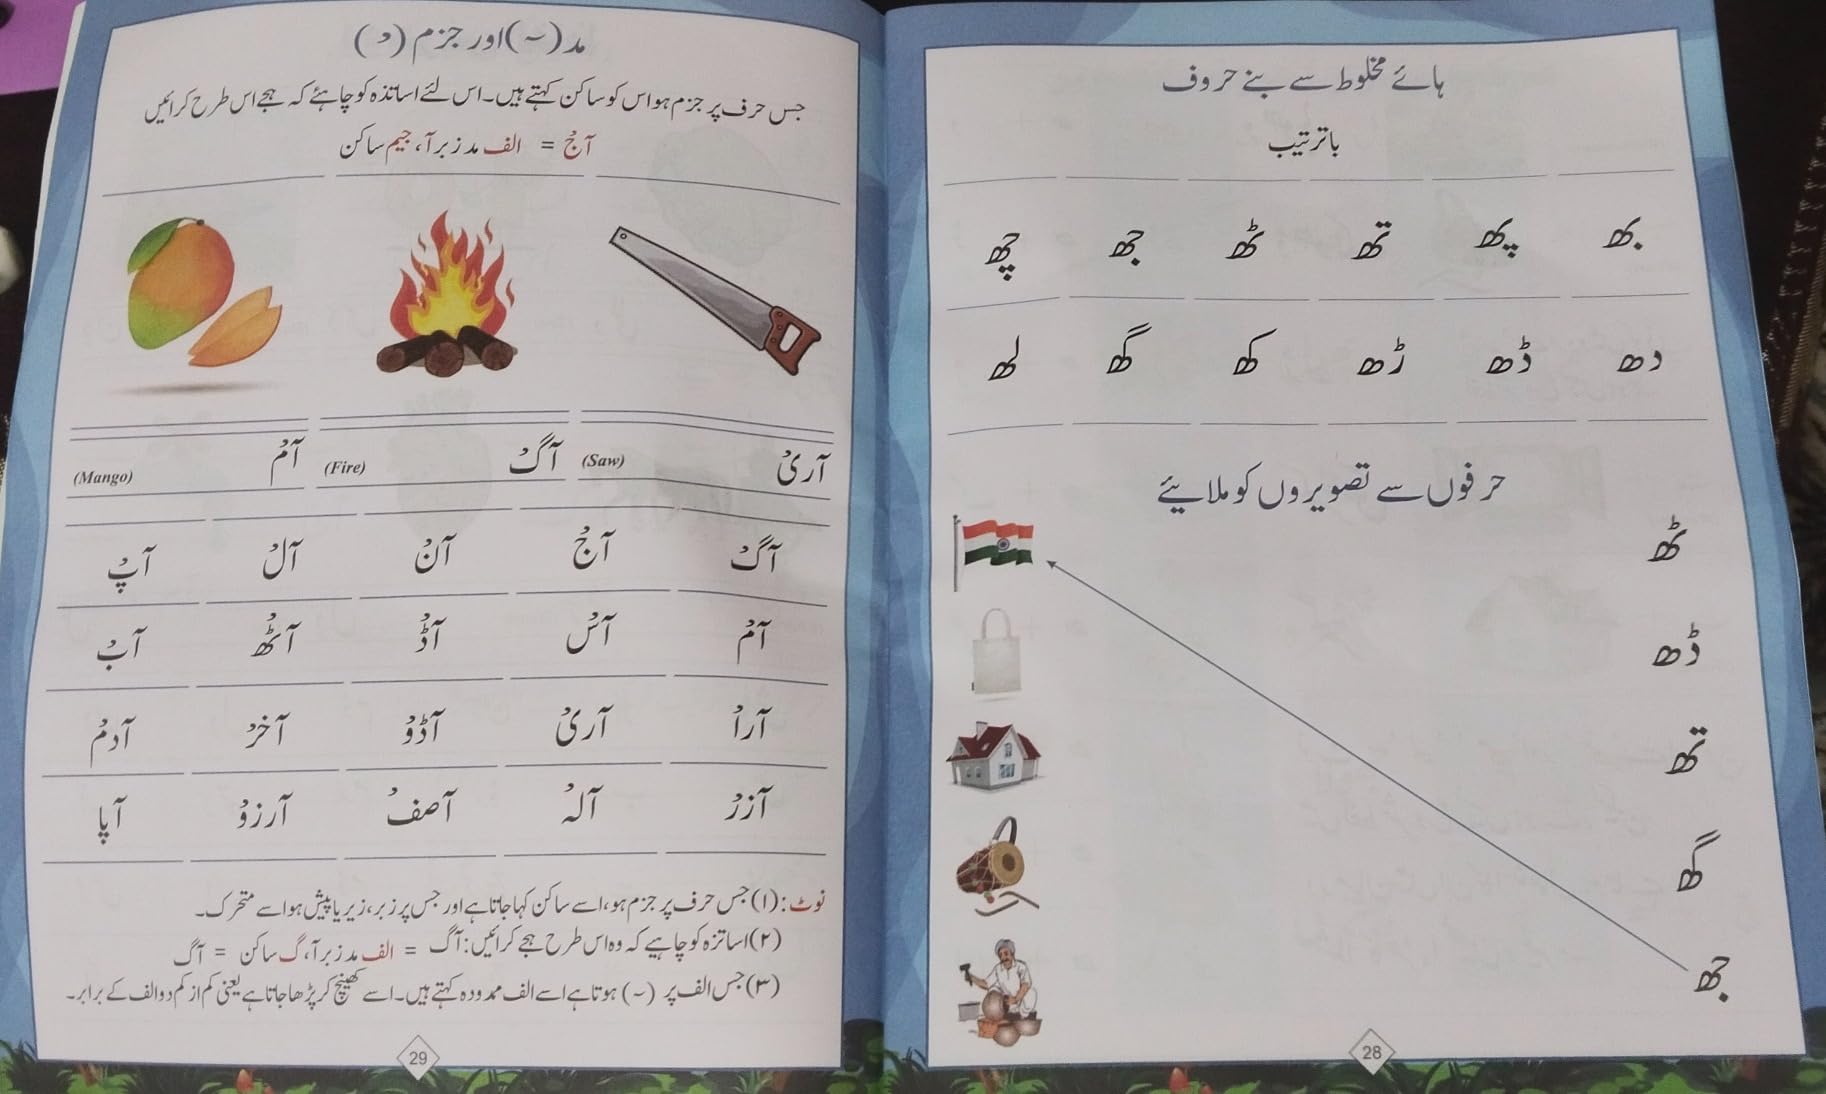 ہائے مخلوط سے بنے حروف
باترتیب
بھ پھ تھ ٹھ جھ چھ
دھ ڈھ ڑھ کھ گھ لھ
حرفوں سے تصویروں کو ملایئے
ٹھ
ڈھ
تھ
گھ
جھ
28
مد (~) اور جزم (ْ)
جس حرف پر جزم ہو اس کو ساکن کہتے ہیں۔ اس لئے اساتذہ کو چاہئے کہ ہجے اس طرح کرائیں
آجْ = الف مد زبر آ، جیم ساکن
آریْ (Saw) آگْ (Fire) آمْ (Mango)
آگْ آجْ آنْ آلْ آپْ
آمْ آسْ آڈْ آٹھْ آبْ
آراْ آریْ آڈوْ آخرْ آدمْ
آزرْ آلہْ آصفْ آرزوْ آپا
نوٹ: (۱) جس حرف پر جزم ہو، اسے ساکن کہا جاتا ہے اور جس پر زبر، زیر یا پیش ہو اسے متحرک۔
(۲) اساتزہ کو چاہیے کہ وہ اس طرح ہجے کرائیں: آگ = الف مد زبر آ، گ ساکن = آگ
(۳) جس الف پر (~) ہوتا ہے اسے الف ممدودہ کہتے ہیں۔ اسے کھینچ کر پڑھا جاتا ہے یعنی کم از کم دو الف کے برابر۔
29